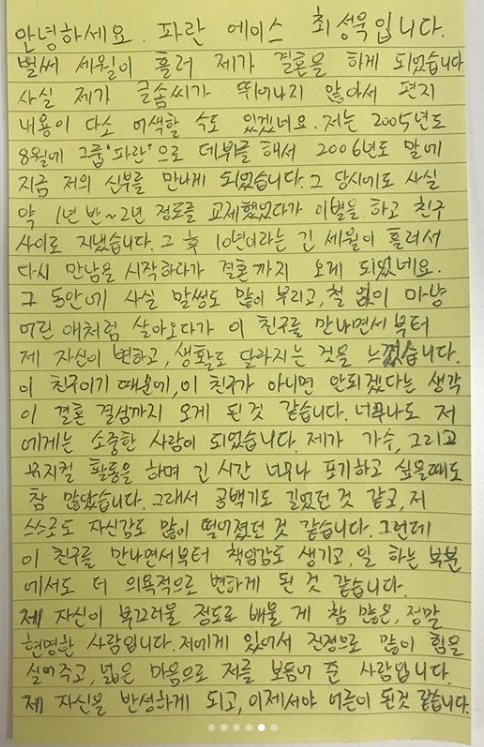 안녕하세요. 파란 에이스 최성욱입니다.
벌써 세월이 흘러 제가 결혼을 하게 되었습니다
사실 제가 글솜씨가 뛰어나지 않아서 편지
내용이 다소 어색할 수도 있겠네요. 저는 2005년도
8월에 그룹'파란'으로 데뷔를 해서 2006년도 말에
지금 저의 신부를 만나게 되었습니다. 그 당시에도 사실
약 1년 반~2년 정도를 교제했었다가 이별을 하고 친구
사이로 지냈습니다. 그 후 10년이라는 긴 세월이 흘러서
다시 만남을 시작하다가 결혼까지 오게 되었네요.
그 동안에 사실 말썽도 많이 부리고, 철 없이 마냥
어린 애처럼 살아오다가 이 친구를 만나면서부터
제 자신이 변하고, 생활도 달라지는 것을 느꼈습니다.
이 친구이기 때문에, 이 친구가 아니면 안되겠다는 생각
이 결혼 결심까지 오게 된 것 같습니다. 너무나도 저
에게는 소중한 사람이 되었습니다. 제가 가수, 그리고
뮤지컬 활동을 하며 긴 시간 너무나 포기하고 싶을때도
참 많았습니다. 그래서 공백기도 길었던 것 같고, 저
스스로도 자신감도 많이 떨어졌던 것 같습니다. 그런데
이 친구를 만나면서부터 책임감도 생기고, 일 하는 부분
에서도 더 의욕적으로 변하게 된 것 같습니다.
제 자신이 부끄러울 정도로 배울 게 참 많은, 정말
현명한 사람입니다. 저에게 있어서 진정으로 많이 힘을
실어주고, 넓은 마음으로 저를 보듬어 준 사람입니다.
제 자신을 반성하게 되고, 이제서야 어른이 된것 같습니다.